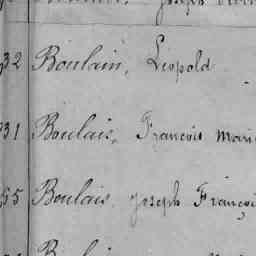 Joseph
32 Boulain, Léopold
31 Boulais, Francois Marie
55 Boulais, Joseph Françoi